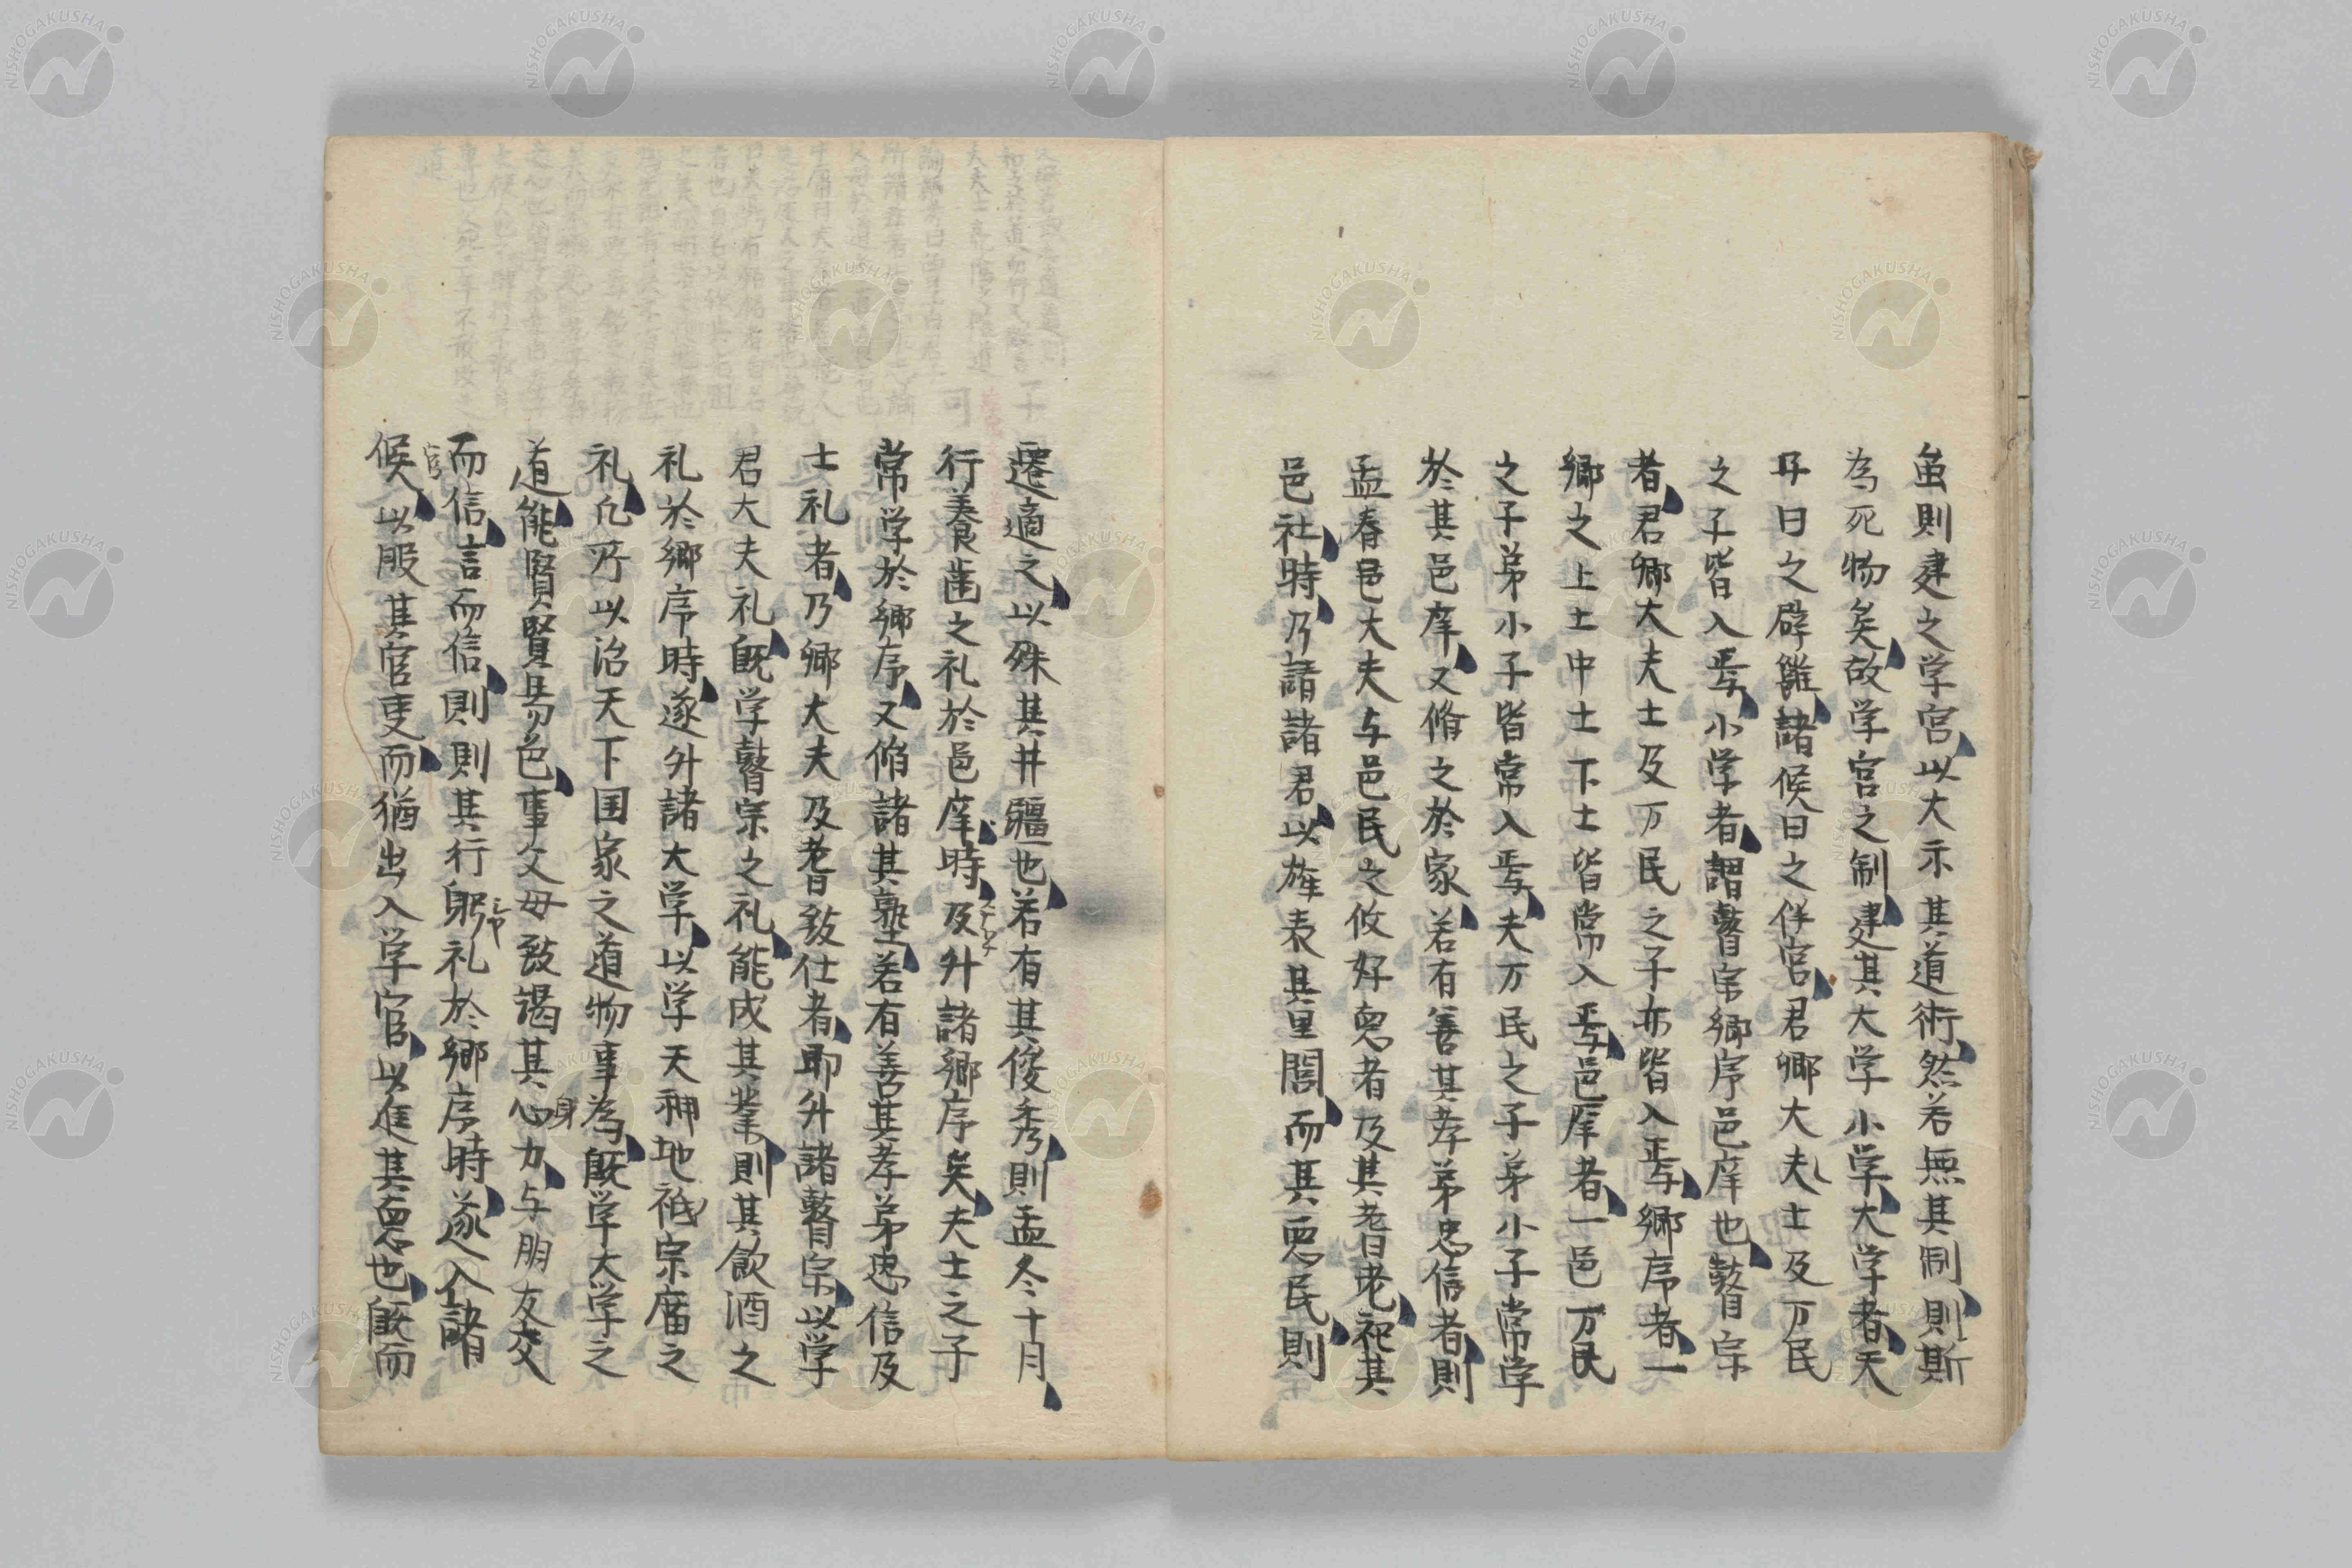 虽則建之学宮以大示其道術然若無其制則斯
為死物矣故学宮之制建其大学小学大学者天
子曰之辟雝諸候曰之伴宮君卿大夫士及万民
之子皆入焉小学者謂瞽宗鄉序邑庠也瞽宗
者君卿大夫士及万民之子亦皆入焉鄉序者一
鄉之上士中士下士皆常入焉邑庠者一邑万民
之子弟小子皆常入焉夫万民之子弟小子常学
於其邑庠又脩之於家若有善其孝弟忠信者則
孟春邑大夫与邑民之攸好悳者及其耆老祀其
邑社時乃諸諸君以旌表其里閭而其悪民則
遷適之以殊其井疆也若有其俊秀則孟冬十月
行養歯之礼於邑庠時及升諸鄉序矣夫士之子
常学於鄉序又脩諸其塾若有善其孝弟忠信及
士礼者乃鄉大夫及耆致仕者即升諸瞽宗以学
君大夫礼既学瞽宗之礼能成其業則其飲酒之
礼於鄉序時遂升諸大学以学天神地祇宗廟之
礼凡所以治天下国家之道物事為既学大学之
道能賢賢易色事父母致謁其心力与朋友交
身
而信言而信則則其行躬礼於鄉序時遂入諸
候以服其官叓而猶出入学官以進其悳也既而
官